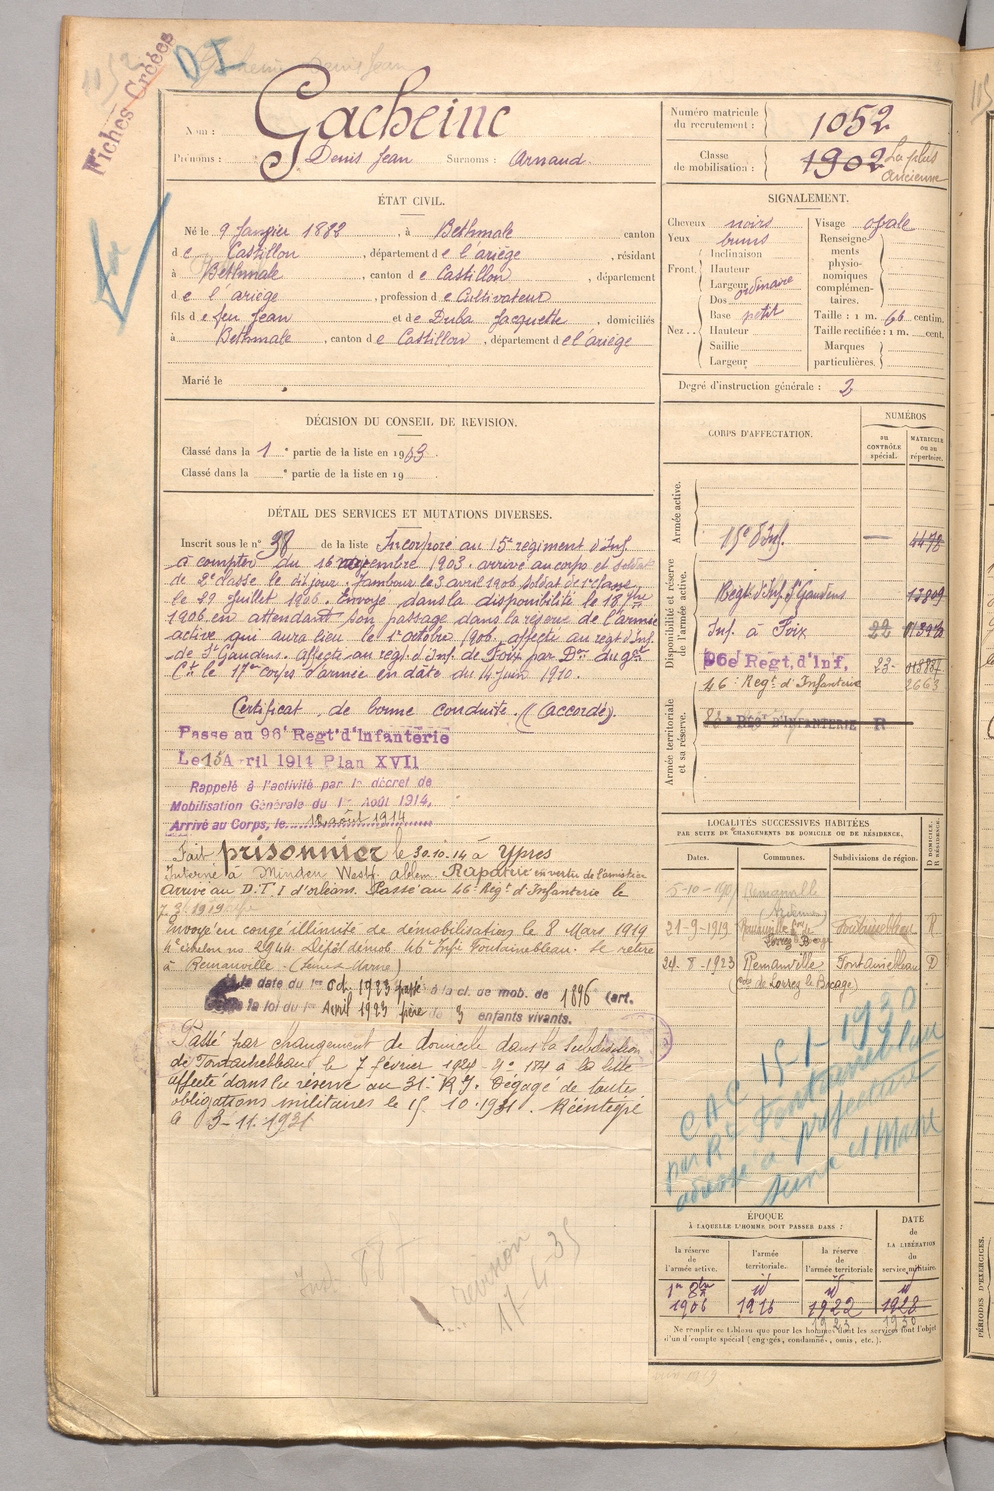 Fiches Créées
D I
Nom : Gacheinc
Prénoms : Denis Jean Surnoms : Arnaud.
Numéro matricule du recrutement : 1052
Classe de mobilisation : 1902 La plus ancienne
ÉTAT CIVIL.
Né le 9 Janvier 1882, à Bethmale canton
de Castillon, département de l'ariège, résidant
à Bethmale, canton de Castillon, département
de l'ariège, profession de Cultivateur
fils de feu Jean et de Duba Jacquette, domiciliés
à Bethmale, canton de Castillon, département de l'ariège
Marié le
SIGNALEMENT.
Cheveux noirs
Yeux bruns
Front. Inclinaison
Hauteur
Largeur ordinaire
Nez .. Dos
Base petit
Hauteur
Saillie
Largeur
Visage ovale
Renseignements physionomiques complémentaires.
Taille : 1 m. 66 centim.
Taille rectifiée : 1 m. cent.
Marques particulières.
Degré d'instruction générale : 2
DÉCISION DU CONSEIL DE REVISION.
Classé dans la 1e partie de la liste en 1903.
Classé dans la e partie de la liste en 19
DÉTAIL DES SERVICES ET MUTATIONS DIVERSES.
Inscrit sous le n° 38 de la liste Incorporé au 15e régiment d'Inf.
à compter du 16 novembre 1903. arrivé au corps et soldat
de 2e classe le dit jour. Tambour le 3 avril 1906 soldat de 1e classe
le 29 Juillet 1906. Envoyé dans la disponibilité le 18 7bre
1906 en attendant son passage dans la réserve de l'armée
active qui aura lieu le 1er octobre 1906. affecté au régt d'Inf.
de St Gaudens. Affecté au régt d'Inf. de Foix par Don du gal
Ct le 17e corps d'armée en date du 14 Juin 1910.
Certificat de bonne conduite. (Accordé).
Passé au 96e Regt d'Infanterie
Le 15 Avril 1914 Plan XVII
Rappelé à l'activité par le décret de
Mobilisation Générale du 1er Août 1914.
Arrivé au Corps, le 12 août 1914
Fait prisonnier le 30.10.14 à Ypres
Interné à Minden Westf. allem. Rapatrié en vertu de l'armistice
Arrivé au D.T.I d'orléans. Passé au 46e Régt d'Infanterie le
Envoyé en congé illimité de démobilisation le 8 Mars 1919
4e échelon no 2944 Dépôt démob. 46e Infie Fontainebleau. Se retire
à Remauville (Seine & Marne)
la date du 1er Oct. 1923 passé à la cl. de mob. de 1896 (art.
la loi du 1er Avril 1923 père de 3 enfants vivants.
Passé par changement de domicile dans la Subdivision
de Fontainebleau le 7 février 1924 no 184 de la liste
affecté dans la réserve au 31e R.I. Dégagé de toutes
obligations militaires le 15.10.1931. Réintégré
le 3-11.1931
revision
17-4-35
CORPS D'AFFECTATION.
NUMÉROS
au CONTRÔLE spécial.
MATRICULE ou au répertoire.
Armée active.
15e d'Inf. 4478
Disponibilité et réserve de l'armée active.
Régt d'Inf. St Gaudens 13909
Inf. à Foix 22
96e Regt, d'Inf, 23-
46e Regt d'Infanterie 2663
Armée territoriale et sa réserve.
REGt D'INFANTERIE R
LOCALITÉS SUCCESSIVES HABITÉES
PAR SUITE DE CHANGEMENTS DE DOMICILE OU DE RÉSIDENCE,
Dates. Communes. Subdivisions de région. D DOMICILE, R RÉSIDENCE.
Remauville
21-9-1919 Remauville Lorrez le Bocage Fontainebleau R
24-8-1923 Remauville (con de Lorrez le Bocage) Fontainebleau D
CAC 15-1-1930
par Rt Fontainebleau
adressé à préfecture
Seine et Marne
ÉPOQUE
À LAQUELLE L'HOMME DOIT PASSER DANS :
la réserve de l'armée active. l'armée territoriale. la réserve de l'armée territoriale DATE de LA LIBÉRATION du service militaire.
1er 8bre 1906 id 1916 id 1922 id 1928
1923 1930
Ne remplir ce tableau que pour les hommes dont les services font l'objet
d'un décompte spécial (engagés, condamnés, omis, etc.).
PÉRIODES D'EXERCICES.